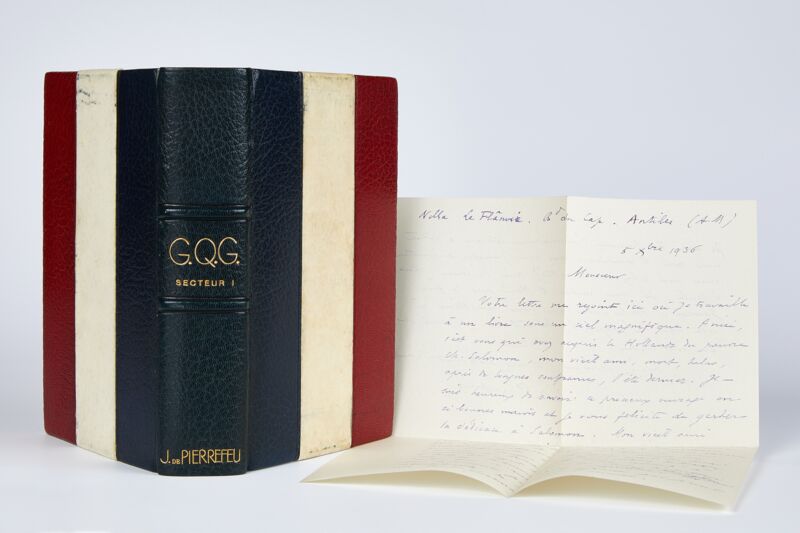 G.Q.G.
SECTEUR I
J. DE PIERREFEU
Villa Le Flânoir. Bd du Cap. Antibes (A M)
5 Xbre 1936
Monsieur
Votre lettre me rejoint ici où je travaille
à un livre sous un ciel magnifique. Ainsi,
c'est vous qui avez acquis le Hollande du pauvre
Ch. Salomon, mon vieil ami, mort, hélas,
après de longues souffrances, l'été dernier. Je
suis heureux de savoir ce précieux ouvrage en
si bonnes mains et je vous félicite de garder
la dédicace à Salomon. Mon vieil ami